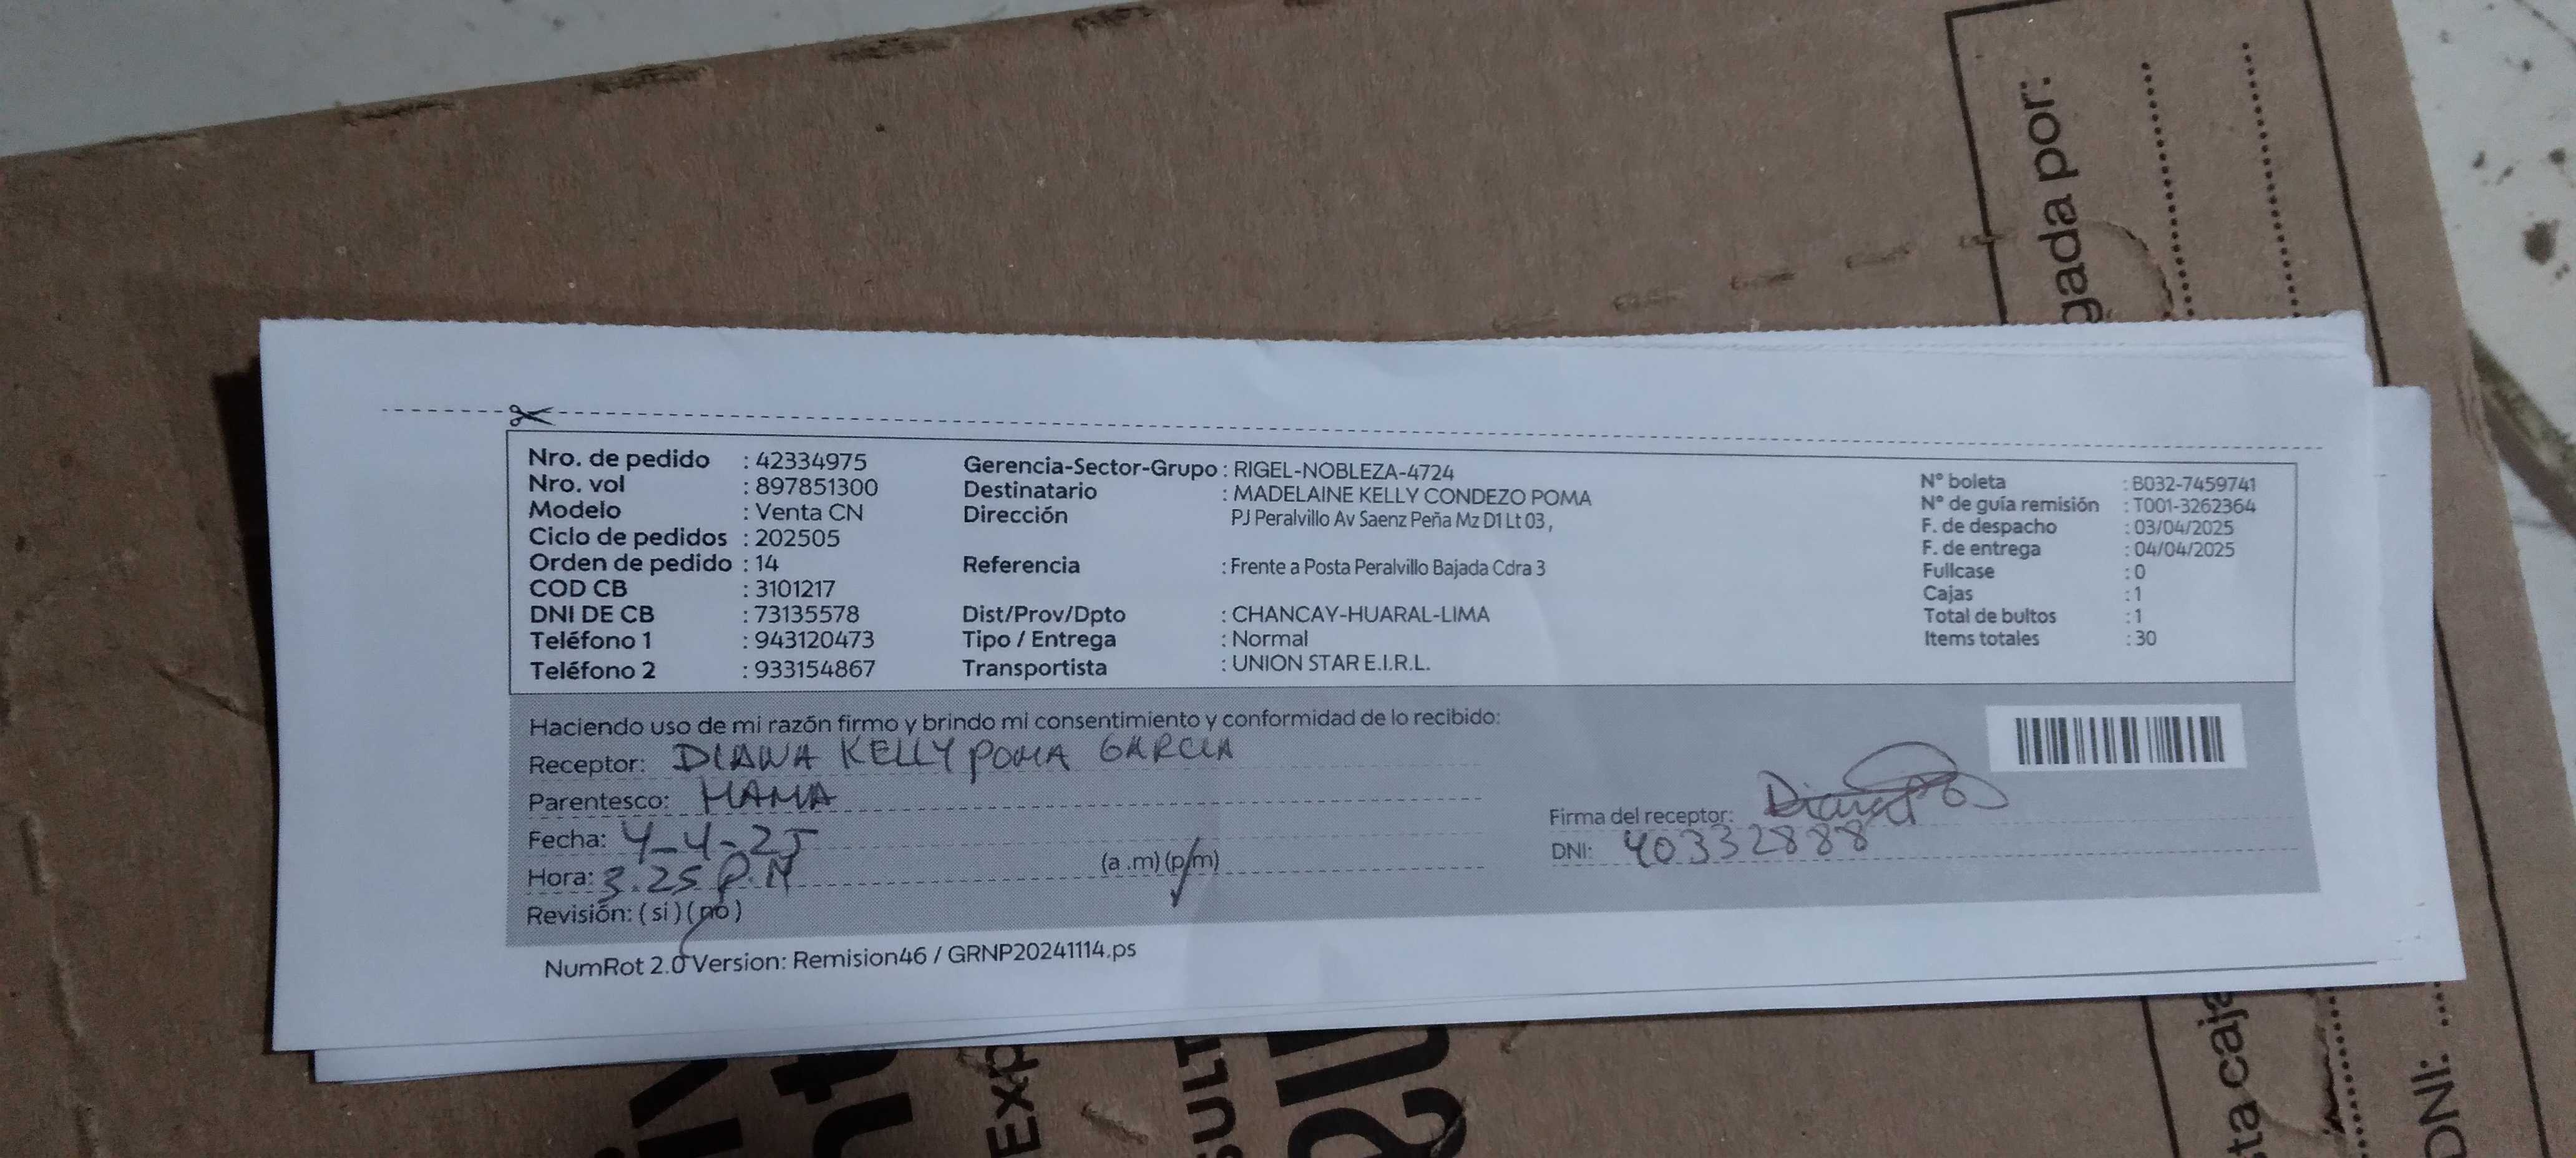 Nro. de pedido : 42334975
Nro. vol : 897851300
Modelo : Venta CN
Ciclo de pedidos : 202505
Orden de pedido : 14
COD CB : 3101217
DNI DE CB : 73135578
Teléfono 1 : 943120473
Teléfono 2 : 933154867
Gerencia-Sector-Grupo : RIGEL-NOBLEZA-4724
Destinatario : MADELAINE KELLY CONDEZO POMA
Dirección PJ Peralvillo Av Saenz Peña Mz D1 Lt 03 ,
Referencia : Frente a Posta Peralvillo Bajada Cdra 3
Dist/Prov/Dpto : CHANCAY-HUARAL-LIMA
Tipo / Entrega : Normal
Transportista : UNION STAR E.I.R.L.
N° boleta : B032-7459741
N° de guía remisión : T001-3262364
F. de despacho : 03/04/2025
F. de entrega : 04/04/2025
Fullcase : 0
Cajas : 1
Total de bultos : 1
Items totales : 30
Haciendo uso de mi razón firmo y brindo mi consentimiento y conformidad de lo recibido:
Receptor: DIANA KELLY POMA GARCIA
Parentesco: MAMA
Fecha: 4-4-25
Hora: 3.25 P.M (a .m) (p/m)
Revisión: ( si ) ( no )
Firma del receptor: Diana
DNI: 40332888
NumRot 2.0 Version: Remision46 / GRNP20241114.ps
gada por:
sta caja
DNI:
Exp
SULT